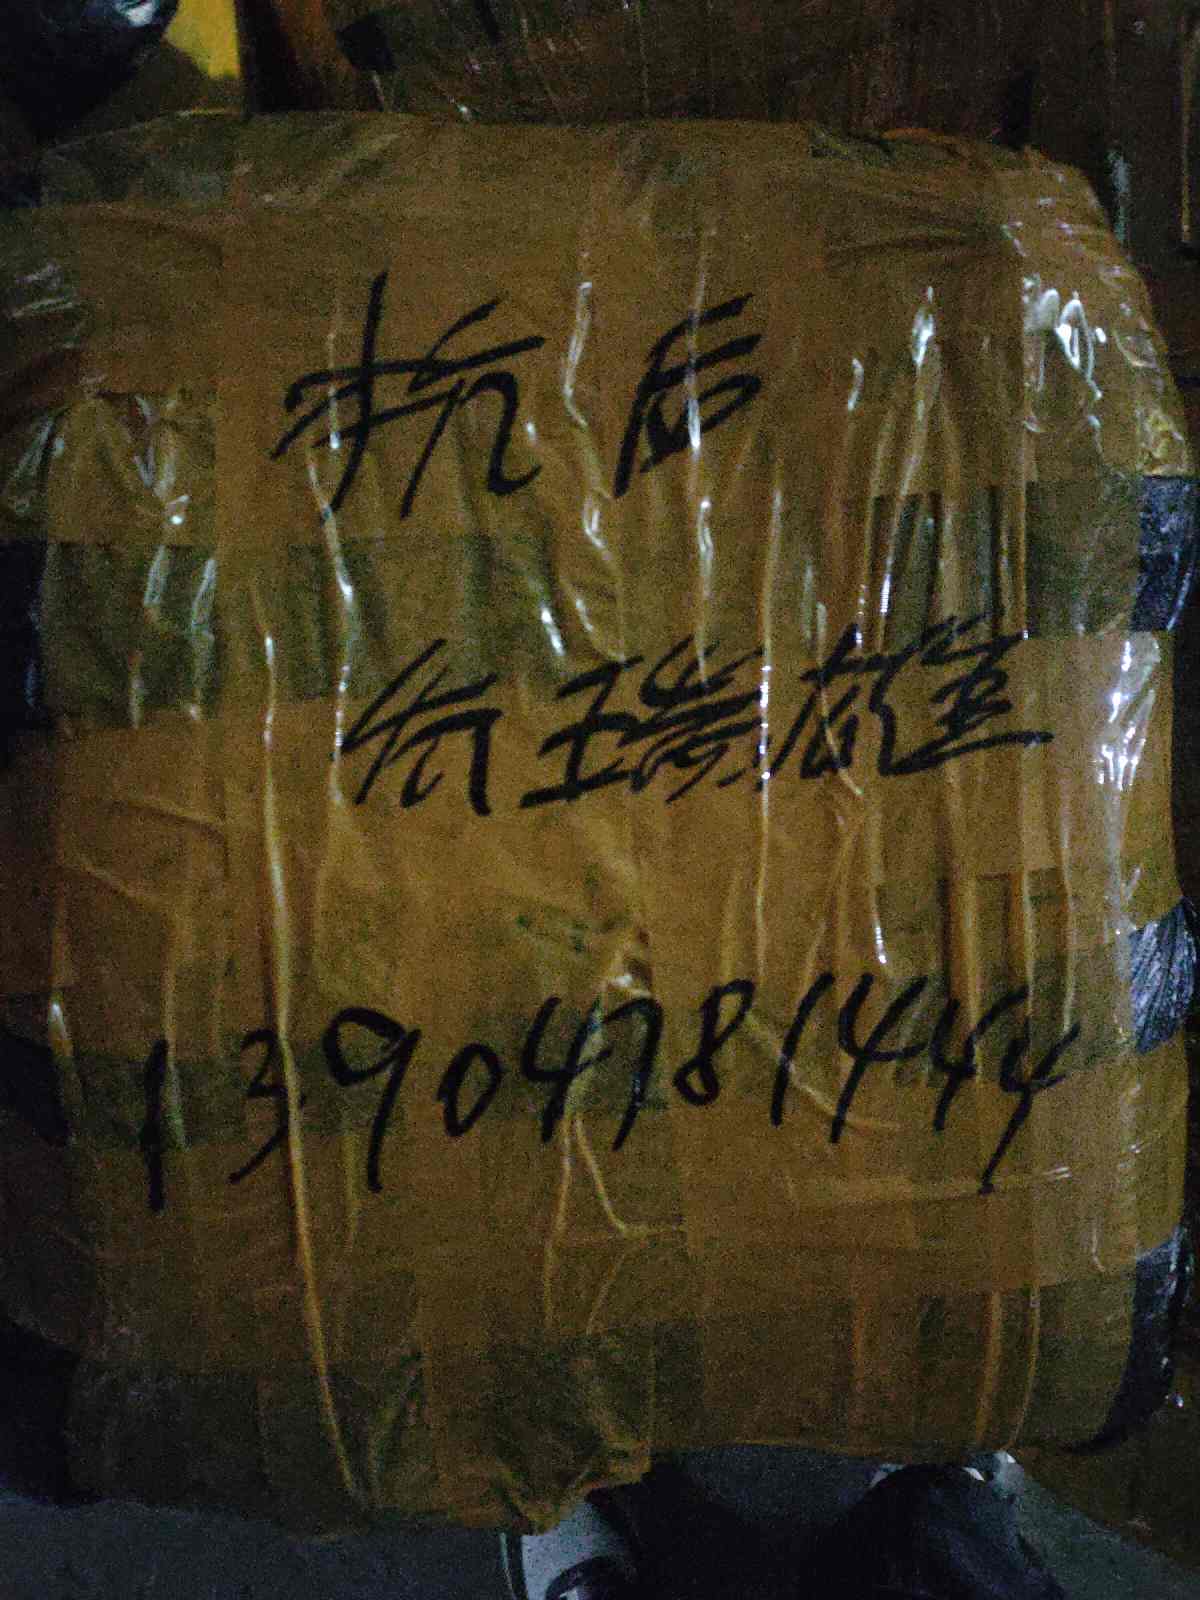 杭后
何瑞雄
13904781444